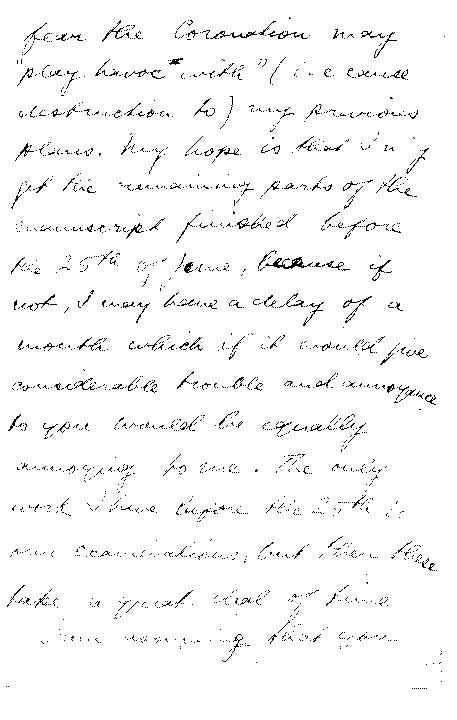 fear the Coronation may
"play havoc with" (i.e cause
destruction to) my previous
plans. My hope is that I may
get the remaining parts of the
manuscript finished before
the 25th of June, because if
not, I may have a delay of a
month which if it would give
considerable trouble and annoyance
to you would be equally
annoying to me. The only
work I have before the 25th is
our examinations, but then these
take a great deal of time
I am assuming that you